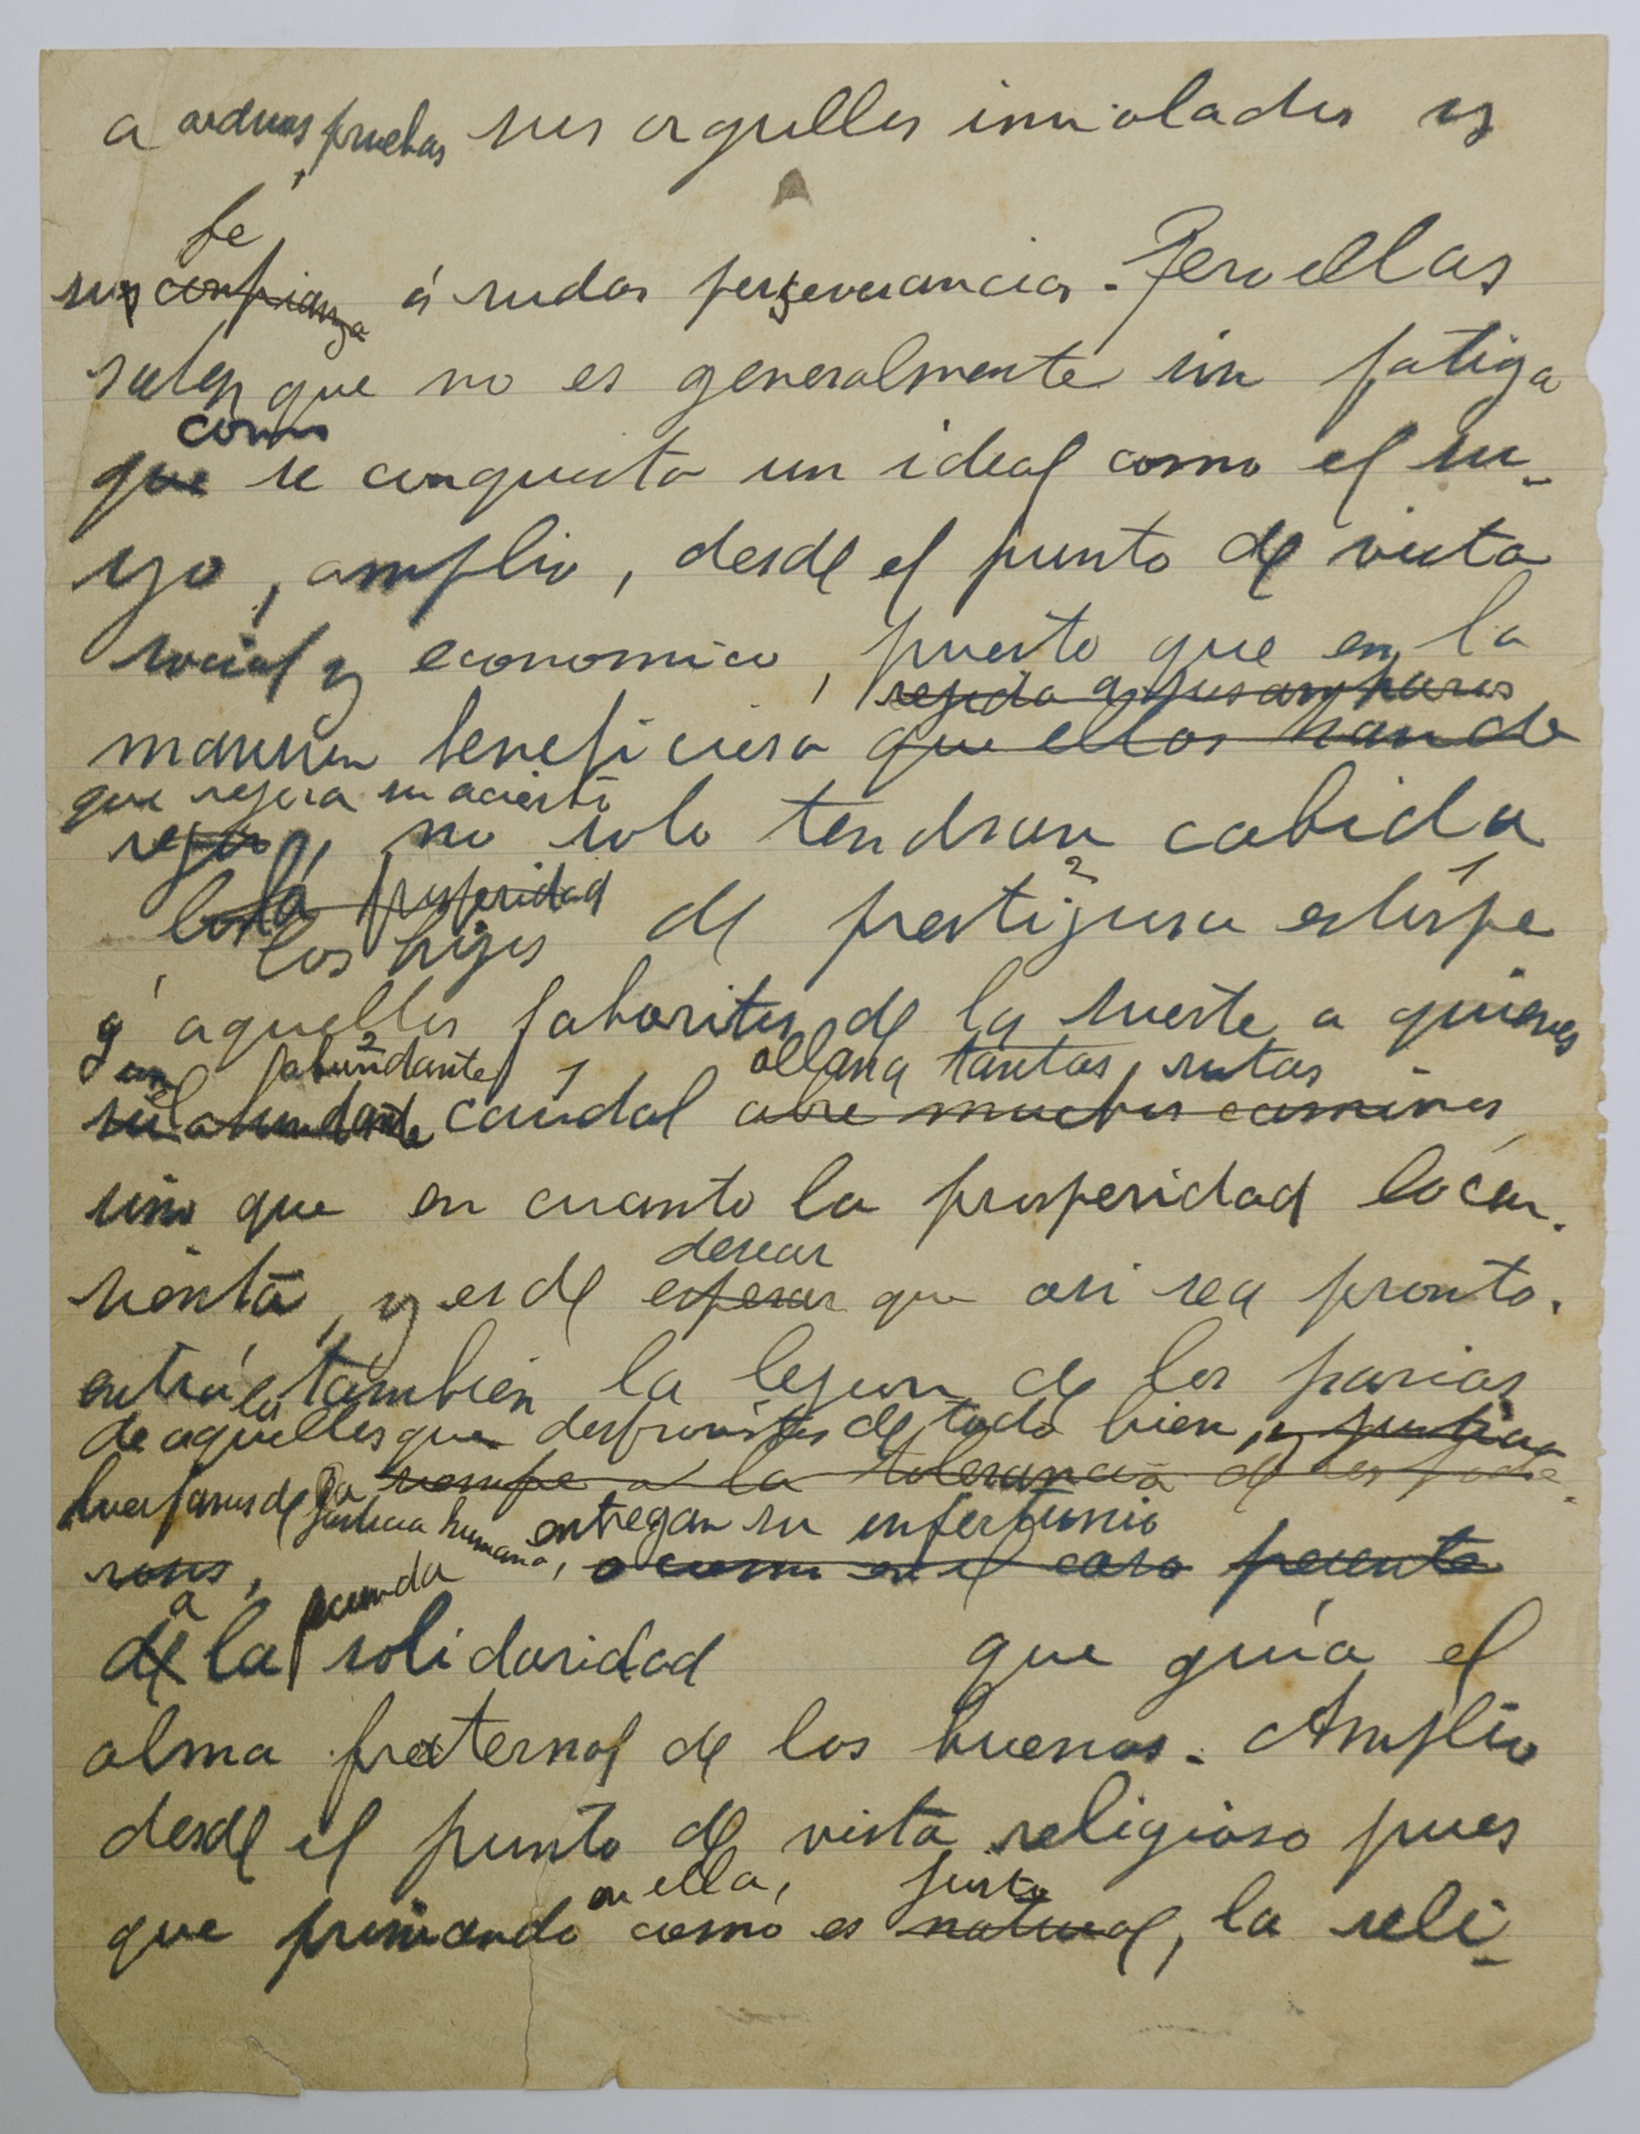 a arduas pruebas sus orgullos inmolados y
fe
sus confianza á rudas perseverancias. Pero ellas
saben que no es generalmente sin fatiga
como
que se conquista un ideal como el su-
yo, amplio, desde el punto de vista
social y economico, puesto que en la
regida a sus amparos
mansion beneficiosa que ellas han de
que regira su acierto
regir, no solo tendran cabida
la prosperidad 2 1
los hijos de prestigiosa estirpe
y aquellos faboritos de la suerte a quienes
un abundante allana tantas rutas
su abundante caudal abre muchos caminos
sino que en cuanto la prosperidad lo con-
sienta, y es de
desear
esperar que asi sea pronto.
entrá también la legion de los parias
de aquellos que desprovistos de todo bien, y
huerfanos de la siempre a la tolerancia de los
justicia humana, entregan su infortunio
o como en el caso presente
a
de la solidaridad que guía el
alma fraternal de los buenos. Amplio
desde el punto de vista religioso pues
en ella, justo
que primando como es natural, la reli-